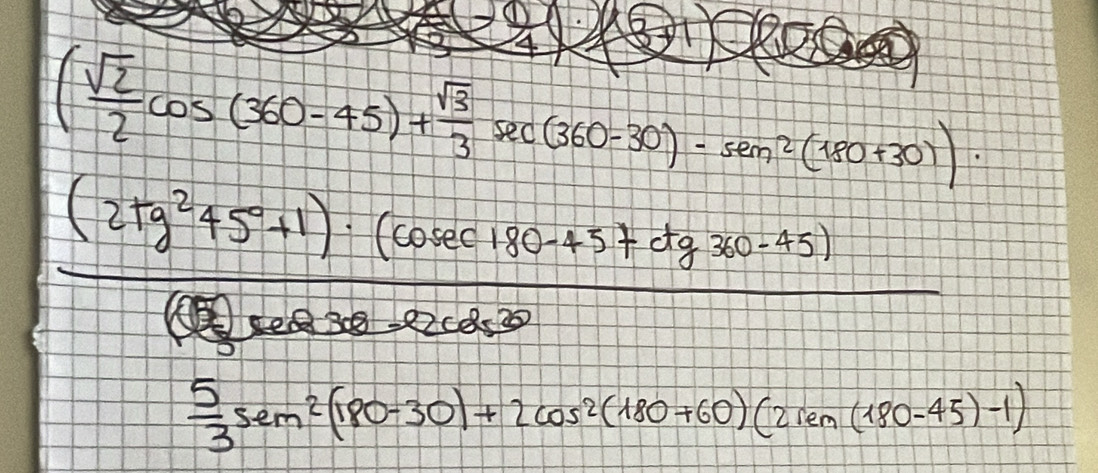 (√2/2 cos (360-45) + √3/3 sec (360-30) - sem²(180+30)) ·
(2tg²45°+1) · (cosec 180-45 + ctg 360-45)
5/3 sem²(180-30) + 2cos²(180+60) (2sem (180-45) -1)